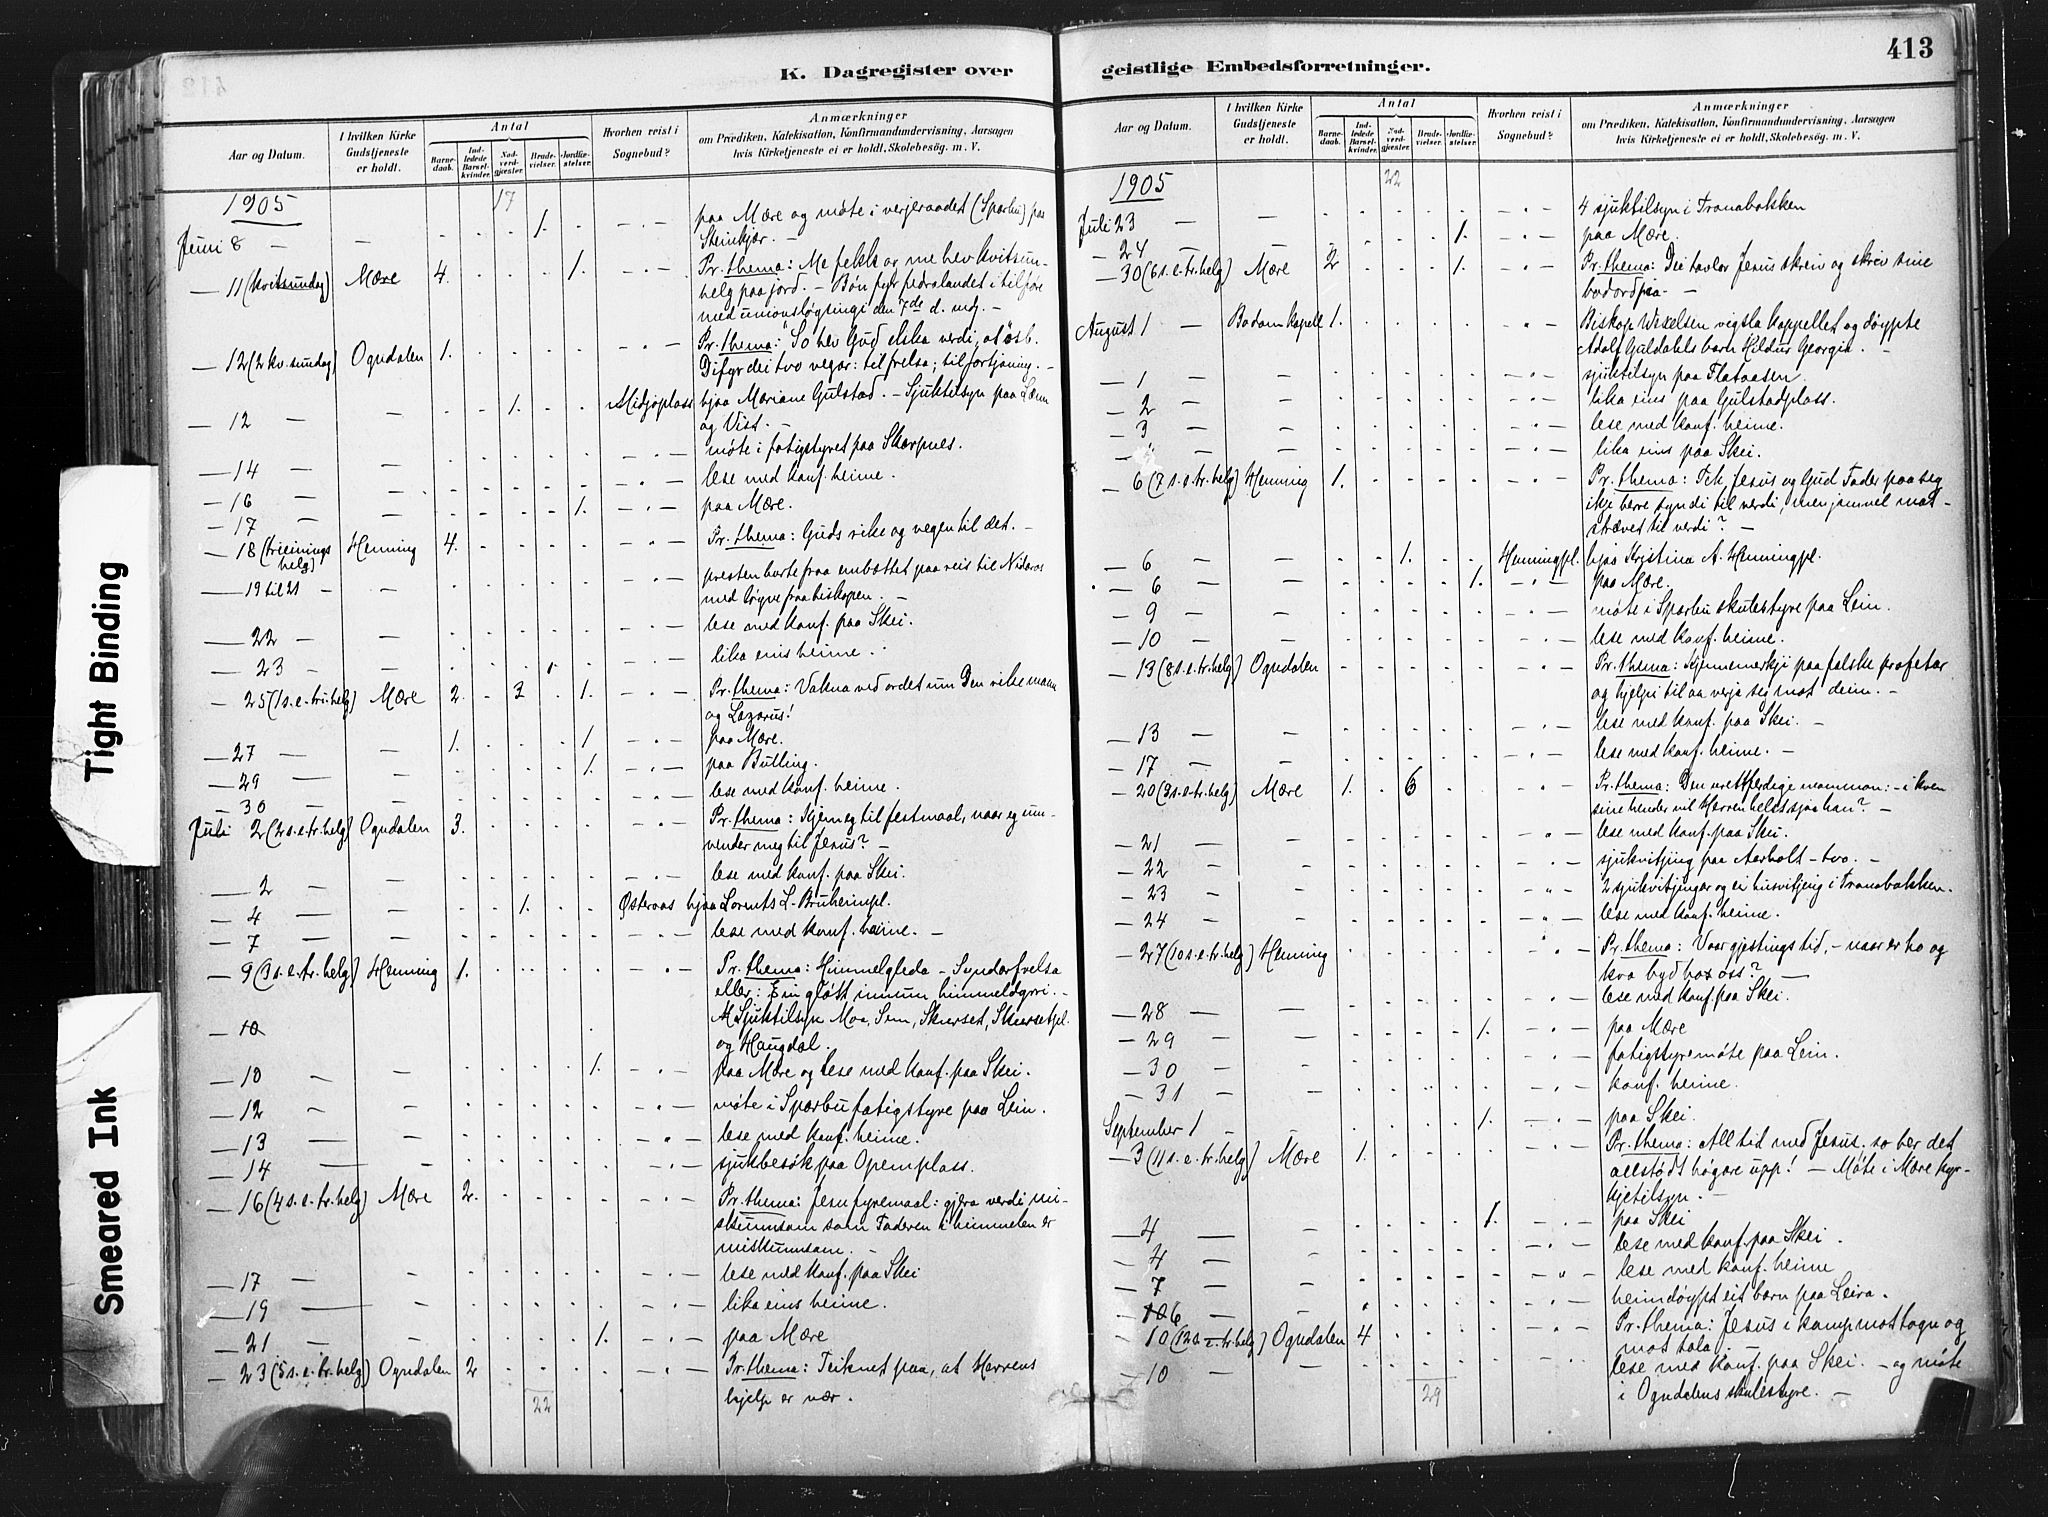 413
K. Dagregister over
geistlige Embedsforretninger.
Aar og Datum.
I hvilken Kirke Gudstjeneste er holdt.
Antal
Barnedaab.
Indledede Barselkvinder.
Nadverdgjæster.
Brudevielser.
Jordfæstelser.
Hvorhen reist i Sognebud?
Anmærkninger
om Prædiken, Katekisation, Konfirmandundervisning, Aarsagen
hvis Kirketjeneste ei er holdt, Skolebesøg. m. V.
1905 17
Juni 8 — — 1. paa Mære og møte i verjeraadet (Sparbu) paa
Steinkjær. —
— 11 (kvitsundag) Mære 4. 1. Pr. thema: Me fekk og me hev kvitsun-
helg paa jord. — Bøn fyr fedralandet i tilføre
med unionsløysingi den 7de d. mdj. —
— 12 (2 kv. sundag) Ogndalen 1. Pr. thema: "So hev Gud elska verdi, at" osb.
Di fyr dei two vegar: til frelsa; til fortjoning. —
— 12 — — 1. Midjoplass hjaa Mariane Gulstad. — Sjuktilsyn paa Læin
og Vist. —
— 14 — — møte i fatigstyret paa Skarpnes.
— 16 — — lese med konf. heime.
— 17 — — 1. paa Mære.
— 18 (trieinings helg) Henning 4. Pr. thema: Guds rike og vegen til det. —
— 19 til 21 — — presten burte fraa embættet paa reis til Nidaros
med løyve fraa biskopen. —
— 22 — lese med konf. paa Skei.
— 23 — lika eins heime.
— 25 (1 s. e. tr. helg) Mære 2. 3 1. Pr. thema: Vakna ved ordet um Den rike mann
og Lazarus!
— 27 — — 1. 1 paa Mære.
— 29 — — 1. paa Butling.
— 30 — — lese med konf. heime.
Juli 2 (2 s. e. tr. helg) Ogndalen 3. Pr. thema: Kjem eg til festmaal, naar eg um-
vender meg til Jesus? —
— 2 — — lese med konf. paa Skei.
— 4 — — 1. Østeraas hjaa Lorents L. Bruheimpl.
— 7 — — lese med konf. heime. —
— 9 (3 s. e. tr. helg) Henning 1. Pr. thema: Himmelgleda — Syndarfrelsa
eller: Ein gløtt innum himmeldøyri. —
— 10 Sjuktilsyn Moa, Sem, Skurset, Skursetpl.
og Haugdal.
— 10 — — 1. paa Mære og lese med konf. paa Skei.
— 12 — — møte i Sparbu fatigstyre paa Lein.
— 13 — — lese med konf. heime.
— 14 — — sjukbesøk paa Opemplass.
— 16 (4 s. e. tr. helg) Mære 2. Pr. thema: Jesu fyremaal: gjera verdi mi-
skunnsam som Faderen i himmelen er
miskunnsam. —
— 17 — lese med konf. paa Skei
— 19 — lika eins heime.
— 21 — 1. paa Mære
— 23 (5 s. e. tr. helg) Ogndalen 2 Pr. thema: Teiknet paa, at Herrens
22 hjelp er nær.
Aar og Datum.
I hvilken Kirke Gudstjeneste er holdt.
Antal
Barnedaab.
Indledede Barselkvinder.
Nadverdgjæster.
Brudevielser.
Jordfæstelser.
Hvorhen reist i Sognebud?
Anmærkninger
om Prædiken, Katekisation, Konfirmandundervisning, Aarsagen
hvis Kirketjeneste ei er holdt, Skolebesøg. m. V.
1905 22
Juli 23 — — 4 sjuktilsyn i Tranabakken
— 24 — — 1. paa Mære.
— 30 (6 s. e. tr. helg) Mære 2 1. Pr. thema: Dei tavlor Jesus skreiv og skriv sine
bodord paa —
August 1 — Bodom Kapell 1. Biskop Wexelsen vigsla kappellet og døypte
Adolf Guldahls barn Hildur Georgia. —
— 1 — — sjuktilsyn paa Flataasen.
— 2 — — lika eins paa Gulstadplass.
— 3 — — lese med konf. heime.
— — lika eins paa Skei.
— 6 (7 s. e. tr. helg) Henning 1. Pr. thema: Tek Jesus og Gud Fader paa seg
ikje berre syndi til verdi, men jamvel mat-
strævet til verdi? —
— 6 — — 1. Henningpl. hjaa Kristina A. Henningpl.
— 6 — — 1. paa Mære.
— 9 — — møte i Sparbu skulestyre paa Lein.
— 10 — — lese med konf. heime.
— 13 (8 s. e. tr. helg) Ogndalen Pr. thema: Kjennemerkji paa falske profetar
og hjelpi til aa verja seg mot deim. —
— 13 — lese med konf. paa Skei. —
— 17 — lese med konf. heime. —
— 20 (9 s. e. tr. helg) Mære 1. 6 Pr. thema: Den urettferdige mammon: — i kven
sine hender vil Herren helst sjaa han? —
— 21 — lese med konf. paa Skei.
— 22 — sjukvitjing paa Aarholt — tvo. —
— 23 — 2 sjukvitjingar og ei husvitjing i Tranabakken.
— 24 — lese med konf. heime.
— 27 (10 s. e. tr. helg) Henning Pr. thema: Vaar gjestings tid, — naar er ho og
kva byd ho oss? —
— 28 — lese med konf. paa Skei.
— 29 — 1. paa Mære
— 30 — fatigstyremøte paa Lein.
— 31 — konf. heime.
September 1 — 1. paa Skei.
— 3 (11 s. e. tr. helg) Mære 1. Pr. thema: All tid med Jesus, so ber det
allstødt høgare upp! — Møte i Mære kyr-
kjetilsyn. —
— 4 — 1. paa Skei
— 4 — lese med konf. paa Skei.
— 7 — lese med konf. heime
— 6 — heimdøypt eit barn paa Leira.
— 10 (12 s. e. tr. helg) Ogndalen 4 Pr. thema: Jesus i kamp mot togn og
mot tala. —
— 10 — lese med konf. paa Skei. — og møte
29 i Ogndalens skulestyre. —
Tight Binding
Smeared Ink